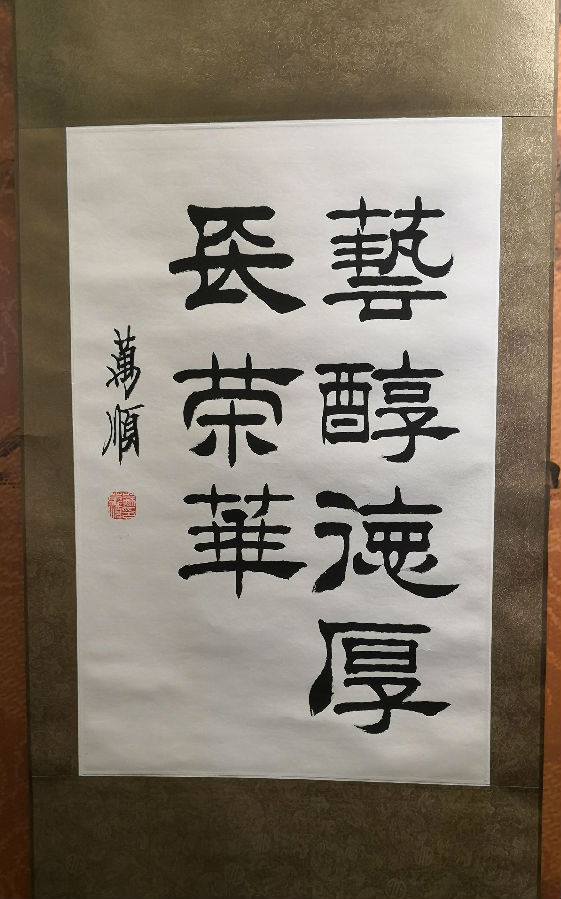 藝醇德厚
長荣華
萬順